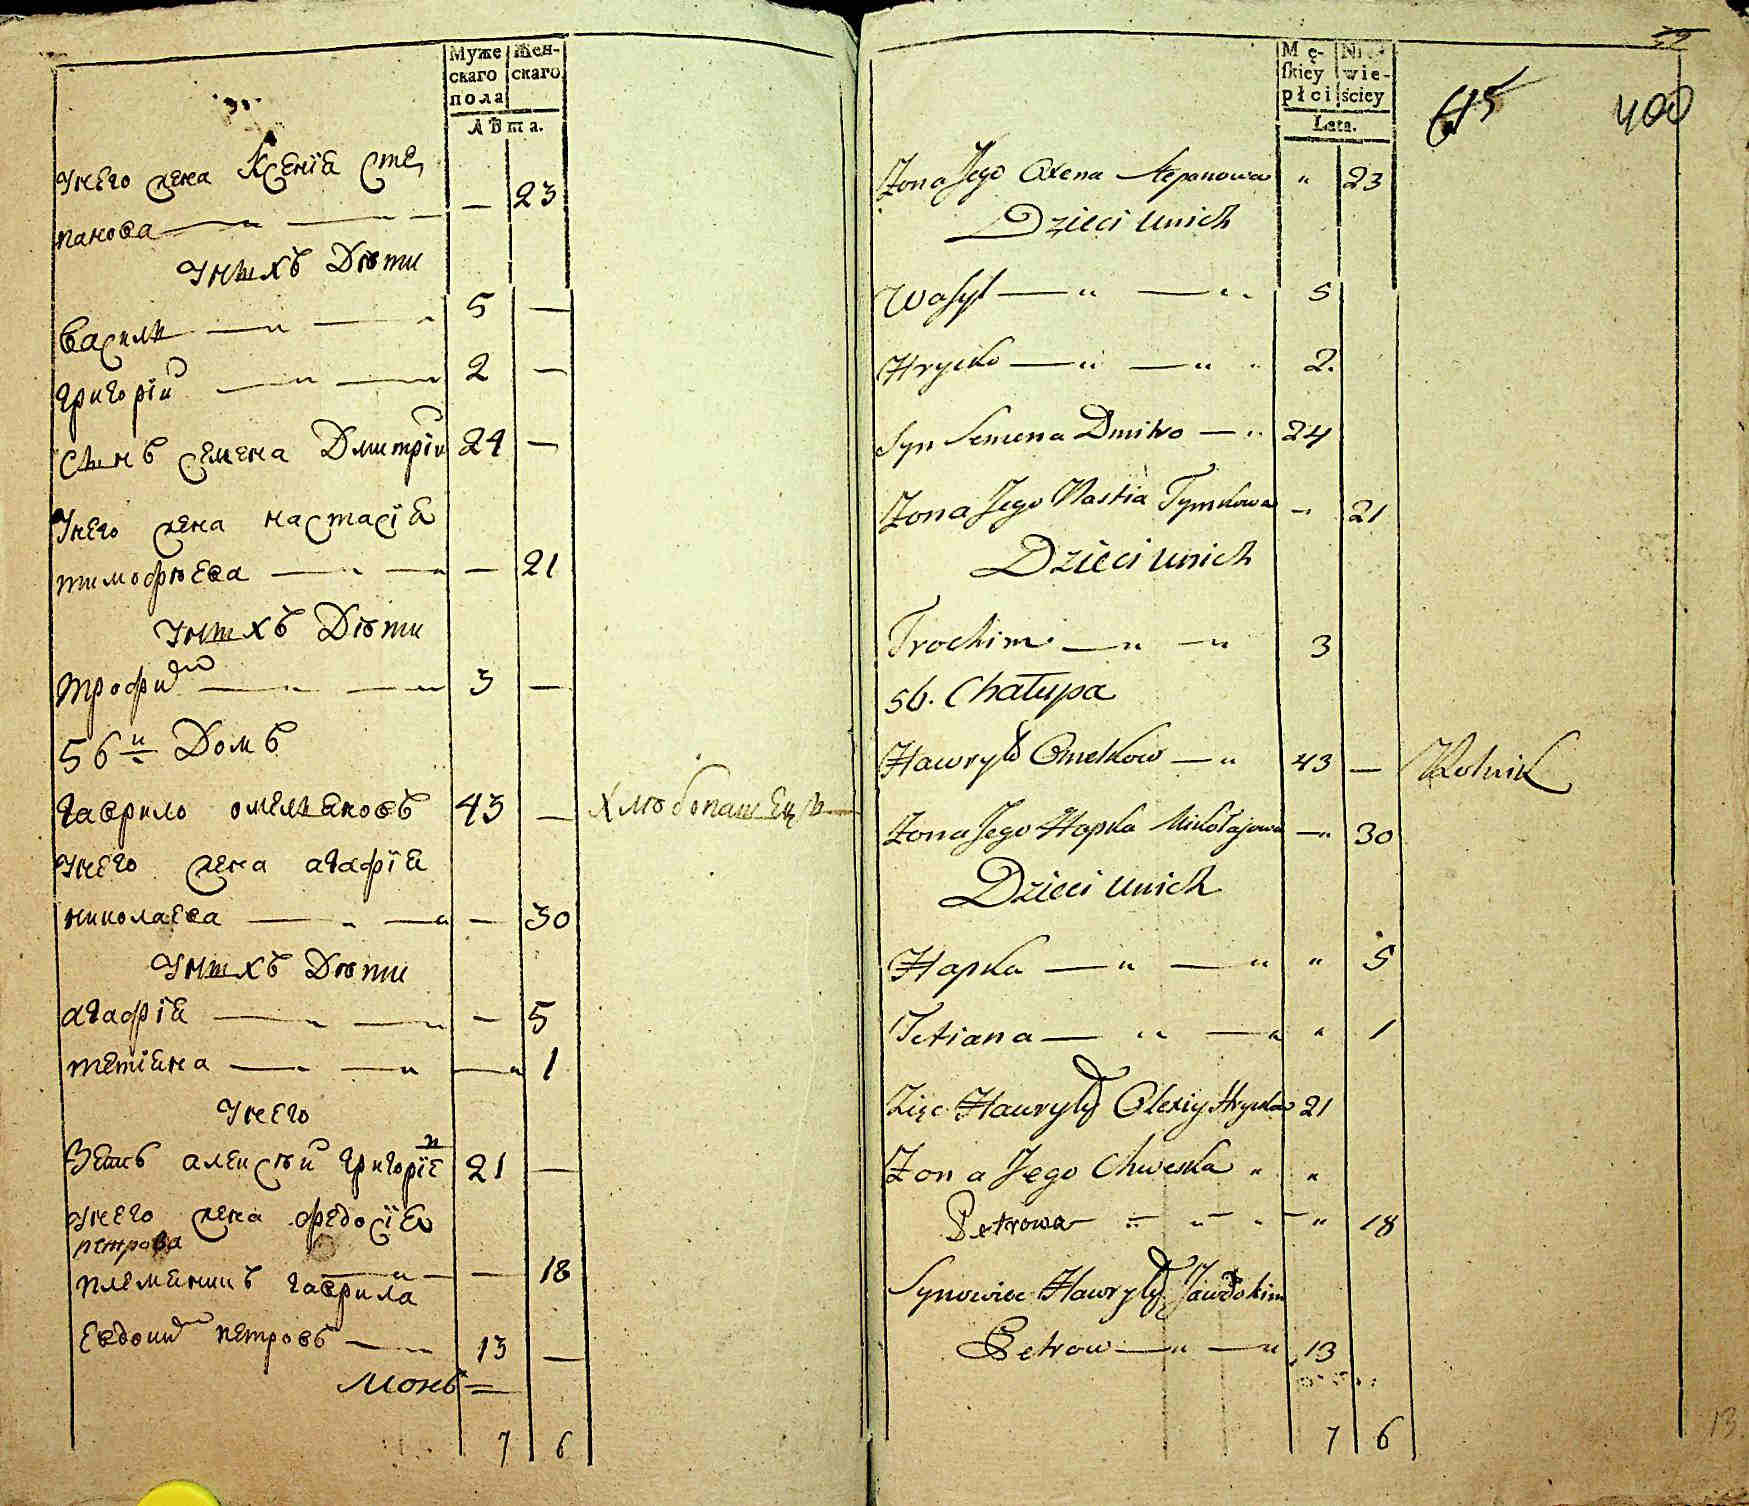 Муже Жен-
скаго скаго
пола
Лѣта.
Унего жена Ксенїя Сте
панова — 23
Унихъ Дѣти
Василь 5 —
Григорїй 2 —
Сынъ Семена Дмитрїй 24 —
Унего жена настасїя
тимофѣева — 21
Унихъ Дѣти
трофим 3 —
56й Домъ
Гаврило омеляновъ 43 — Хлѣбопашецъ
Унего жена агафїя
николаева — 30
Унихъ Дѣти
агафїя — 5
тетїяна — 1
Унего
Зять алексѣй григорїе 21 —
Унего жена федосїя
петрова
— 18
племянникъ гаврила
Евдоким петровъ 13 —
7 6
Mę- Nie
skiey wie-
płci ściey
Lata.
615 400
Zona Jego Oxena Stepanowa " 23
Dzieci unich
Wasyl 5
Hrycko 2.
Syn Semena Dmitro 24
Zona Jego Nastia Tymkowa 21
Dzieci unich
Trochim 3
56. Chałupa
Hawryło Omelkow 43 — Rolnik
Zona Jego Hapka Mikołajowa 30
Dzieci unich
Hapka " 5
Tetiana " 1
Zięc Hawryły Olexiy Hryckow 21
Zona Jego Chweska " "
Petrowa " 18
Synowiec Hawryły Jawdokim
Petrow 13
7 6
13